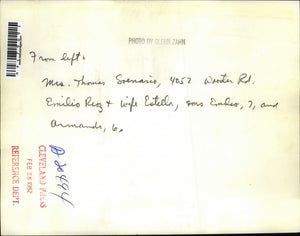 PHOTO BY GLENN ZAHN
From left:
Mrs. Thomas 4052 Wooster Rd.
Emilio & wife Estella, sons Emilio, 7, and
Armando, 6.
CLEVELAND PRESS
FEB 26 1962
REFERENCE DEPT.